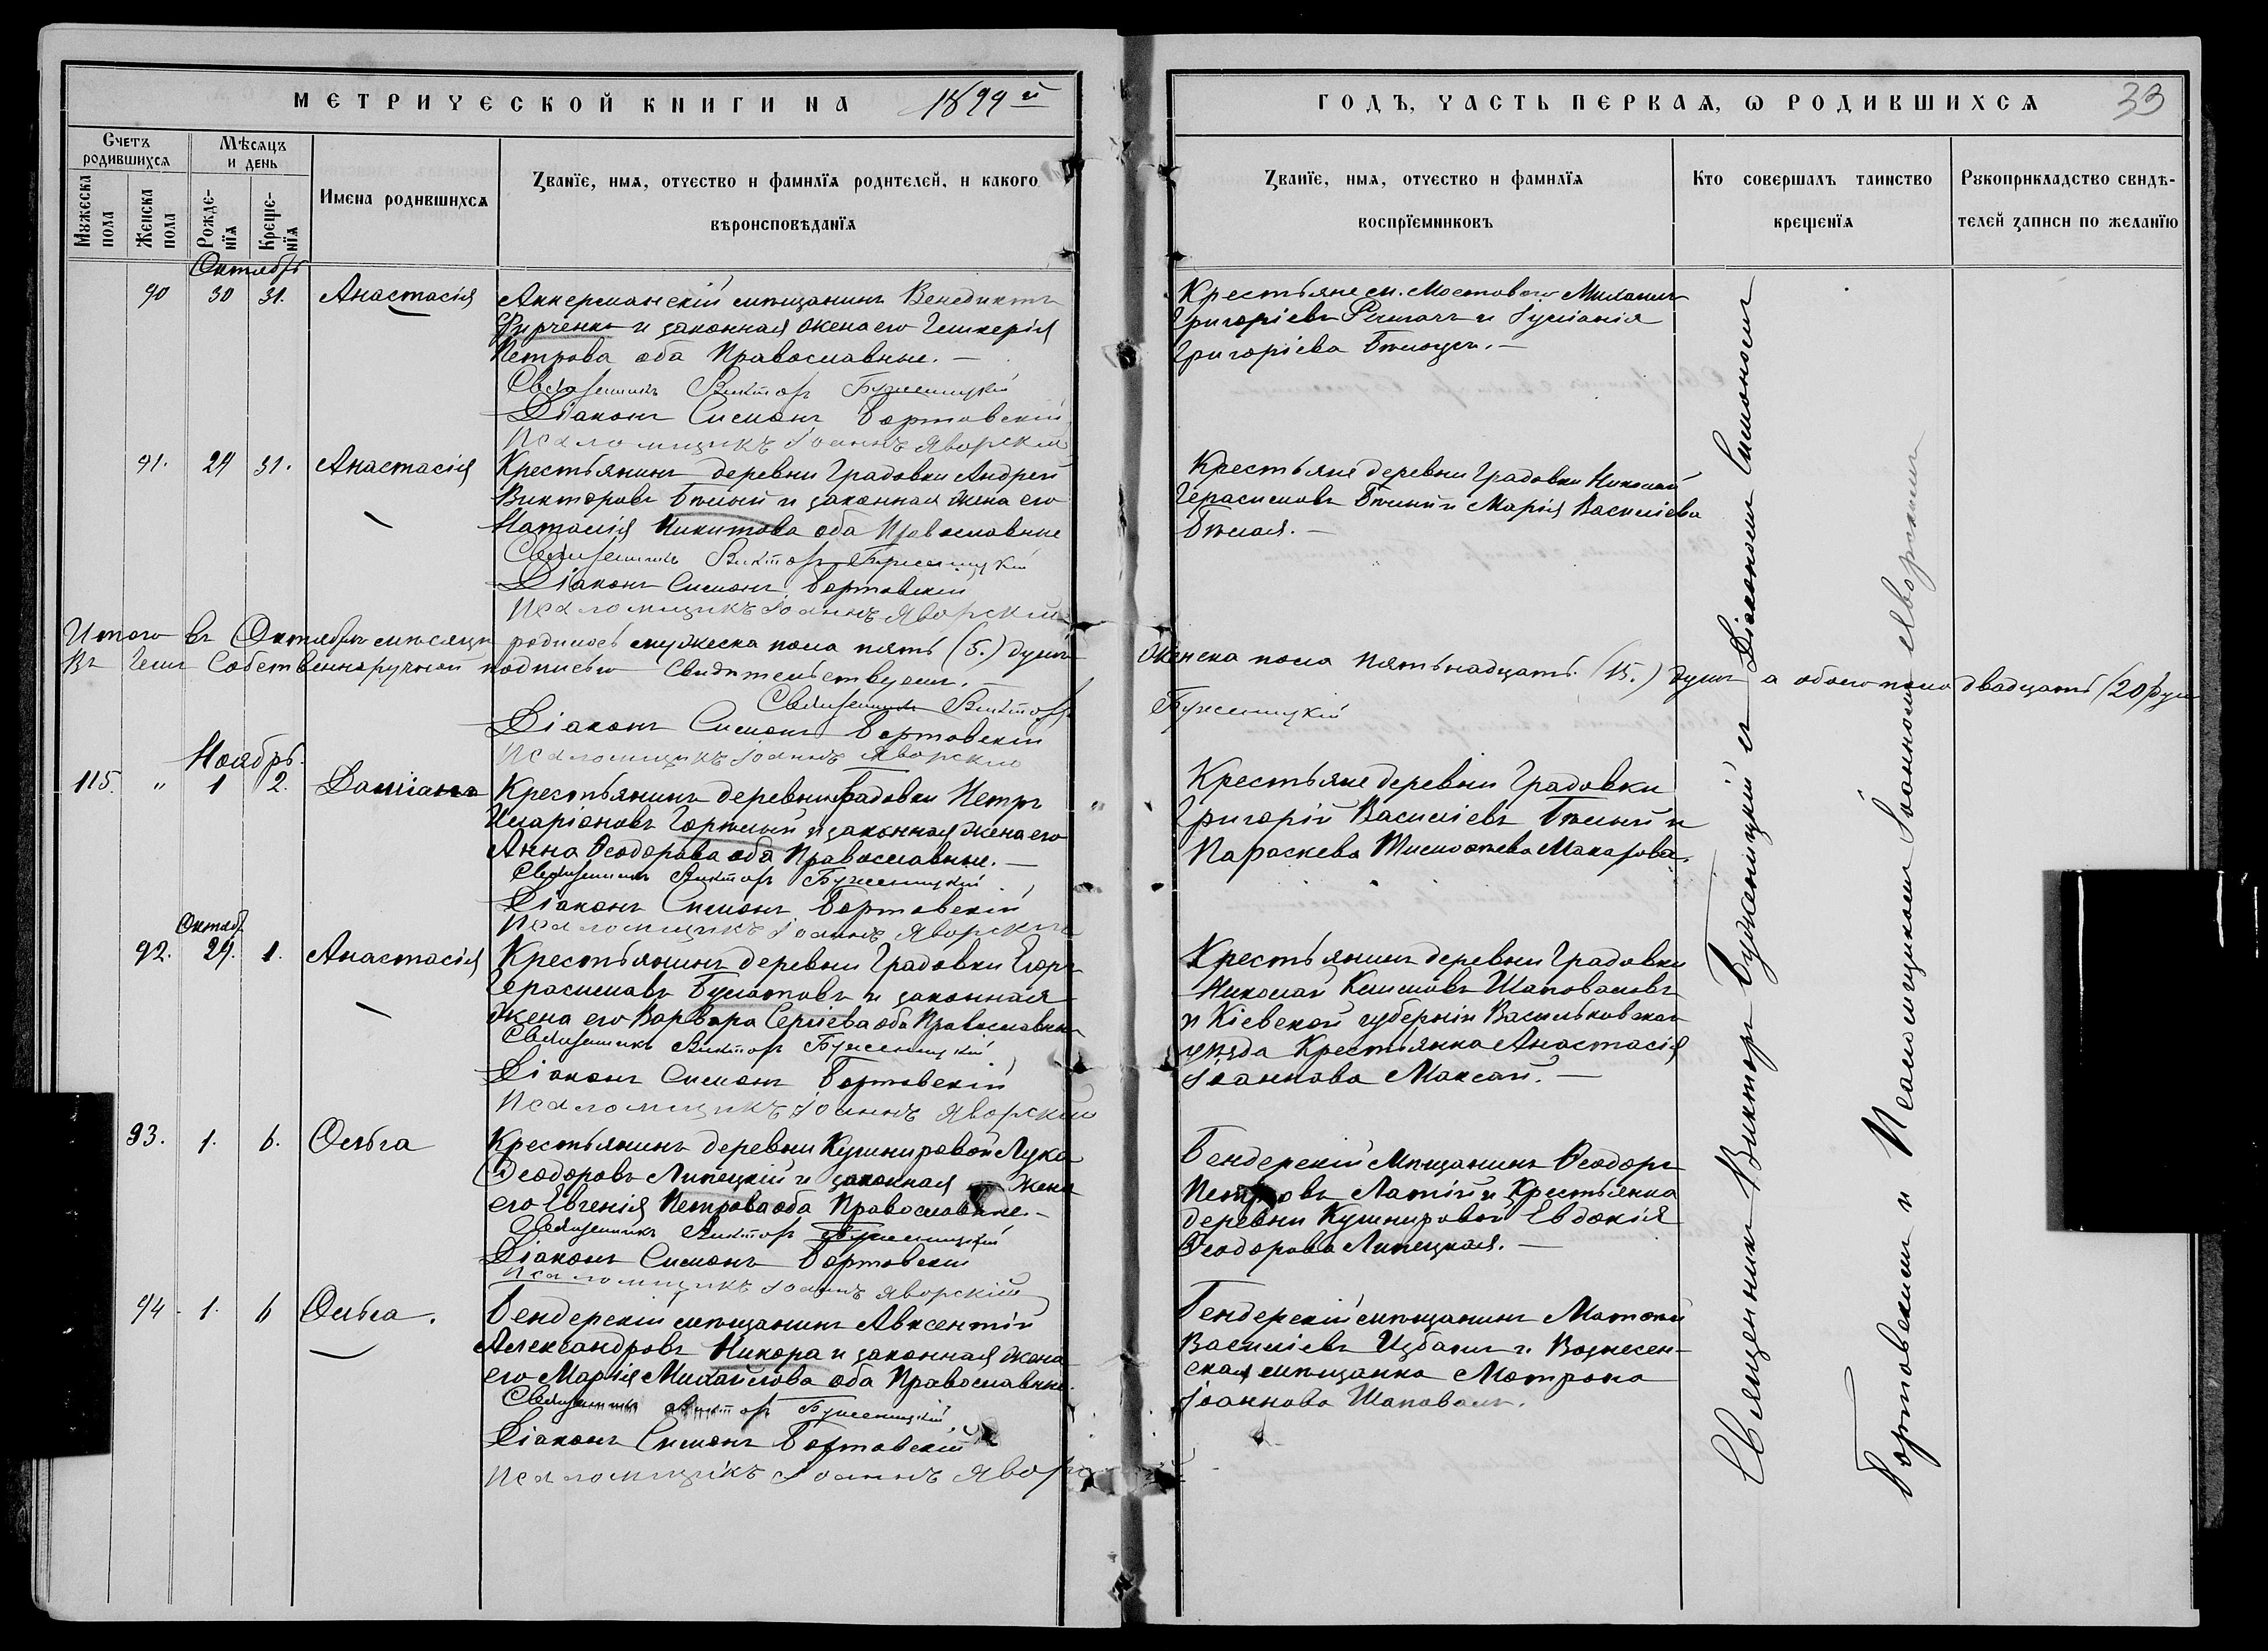 МЕТРИЧЕСКОЙ КНИГИ НА 1899й
ГОДЪ, ЧАСТЬ ПЕРВАЯ, Ѡ РОДИВШИХСЯ 33
Счетъ родившихся
Мѣсяцъ и день
Мужеска пола
Женска пола
Рожде-нїя
Креще-нїя
Имена родившихся
Званїе, имя, отчество и фамилїя родителей, и какого
вѣроисповѣданїя
Званїе, имя, отчество и фамилїя
воспрїемниковъ
Кто совершалъ таинство
крещенїя
Рукоприкладство свидѣ-
телей записи по желанїю
Октябрь
90 30 31. Анастасія Аккерманскій мѣщанинъ Венедиктъ
и законная жена его Гликерія
Петрова оба Православные. —
Священникъ Викторъ Буженицкій
Діаконъ Симонъ Бортовскій
Псаломщикъ Іоаннъ Яворскій
Крестьяне м. Мостоваго Михаилъ
Григоріевъ и
Григоріева —
91. 29 31. Анастасія Крестьянинъ деревни Градовки Андрей
Викторовъ Бѣлый и законная жена его
Наталія Никитова оба Православные
Священникъ Викторъ Буженицкій
Діаконъ Симонъ Бортовскій
Псаломщикъ Іоаннъ Яворскій
Крестьяне деревни Градовки Николай
Герасимовъ Бѣлый и Марія Василіева
Бѣлая. —
Итого въ Октябрѣ мѣсяцѣ родилось мужеска пола пять (5.) душъ
женска пола пятьнадцать (15.) душъ а обоего пола двадцать (20) душ
Въ чемъ Собственноручной подписью Свидѣтельствуемъ. —
Священникъ Викторъ
Буженицкій
Діаконъ Симонъ Бортовскій
Псаломщикъ Іоаннъ Яворскій
Ноябрь.
115. " 1 2. Даміанъ Крестьянинъ деревни Градовки Петръ
Иларіоновъ Горѣлый и законная жена его
Анна Ѳеодорова оба Православные. —
Священникъ Викторъ Буженицкій
Діаконъ Симонъ Бортовскій
Псаломщикъ Іоаннъ Яворскій
Крестьяне деревни Градовки
Григорій Василіевъ Бѣлый и
Параскева Тимоѳеева Макарова.
Октяб.
92. 29. 1. Анастасія Крестьянинъ деревни Градовки Егоръ
Герасимовъ Булатовъ и законная
жена его Варвара Сергіева оба Православны
Священникъ Викторъ Буженицкій
Діаконъ Симонъ Бортовскій
Псаломщикъ Іоаннъ Яворскій
Крестьянинъ деревни Градовки
Николай Климовъ Шаповаловъ
и Кіевской губерніи Васильковскаго
уѣзда Крестьянка Анастасія
Іоаннова Максай. —
93. 1. 6. Ольга Крестьянинъ деревни Кушнировой Лука
Ѳеодоровъ Липецкій и законная жена
его Евгенія Петрова оба Православные. —
Священникъ Викторъ Буженицкій
Діаконъ Симонъ Бортовскій
Псаломщикъ Іоаннъ Яворскій
Бендерскій мѣщанинъ Ѳеодоръ
Петровъ Латій и Крестьянка
деревни Кушнировой Евдокія
Ѳеодорова Липецкая. —
94 1. 6 Ольга. Бендерскій мѣщанинъ Авксентій
Александровъ Никора и законная жена
его Марія Михайлова оба Православные.
Священникъ Викторъ Буженицкій
Діаконъ Симонъ Бортовскій
Псаломщикъ Іоаннъ Яворс
Бендерскій мѣщанинъ Матѳей
Василіевъ Избашъ и Вознесен-
ская мѣщанка Матрона
Іоаннова Шаповалъ.
Священникъ Викторъ Буженицкій съ Діакономъ Симономъ
Бортовскимъ и Псаломщикомъ Іоанномъ Яворскимъ